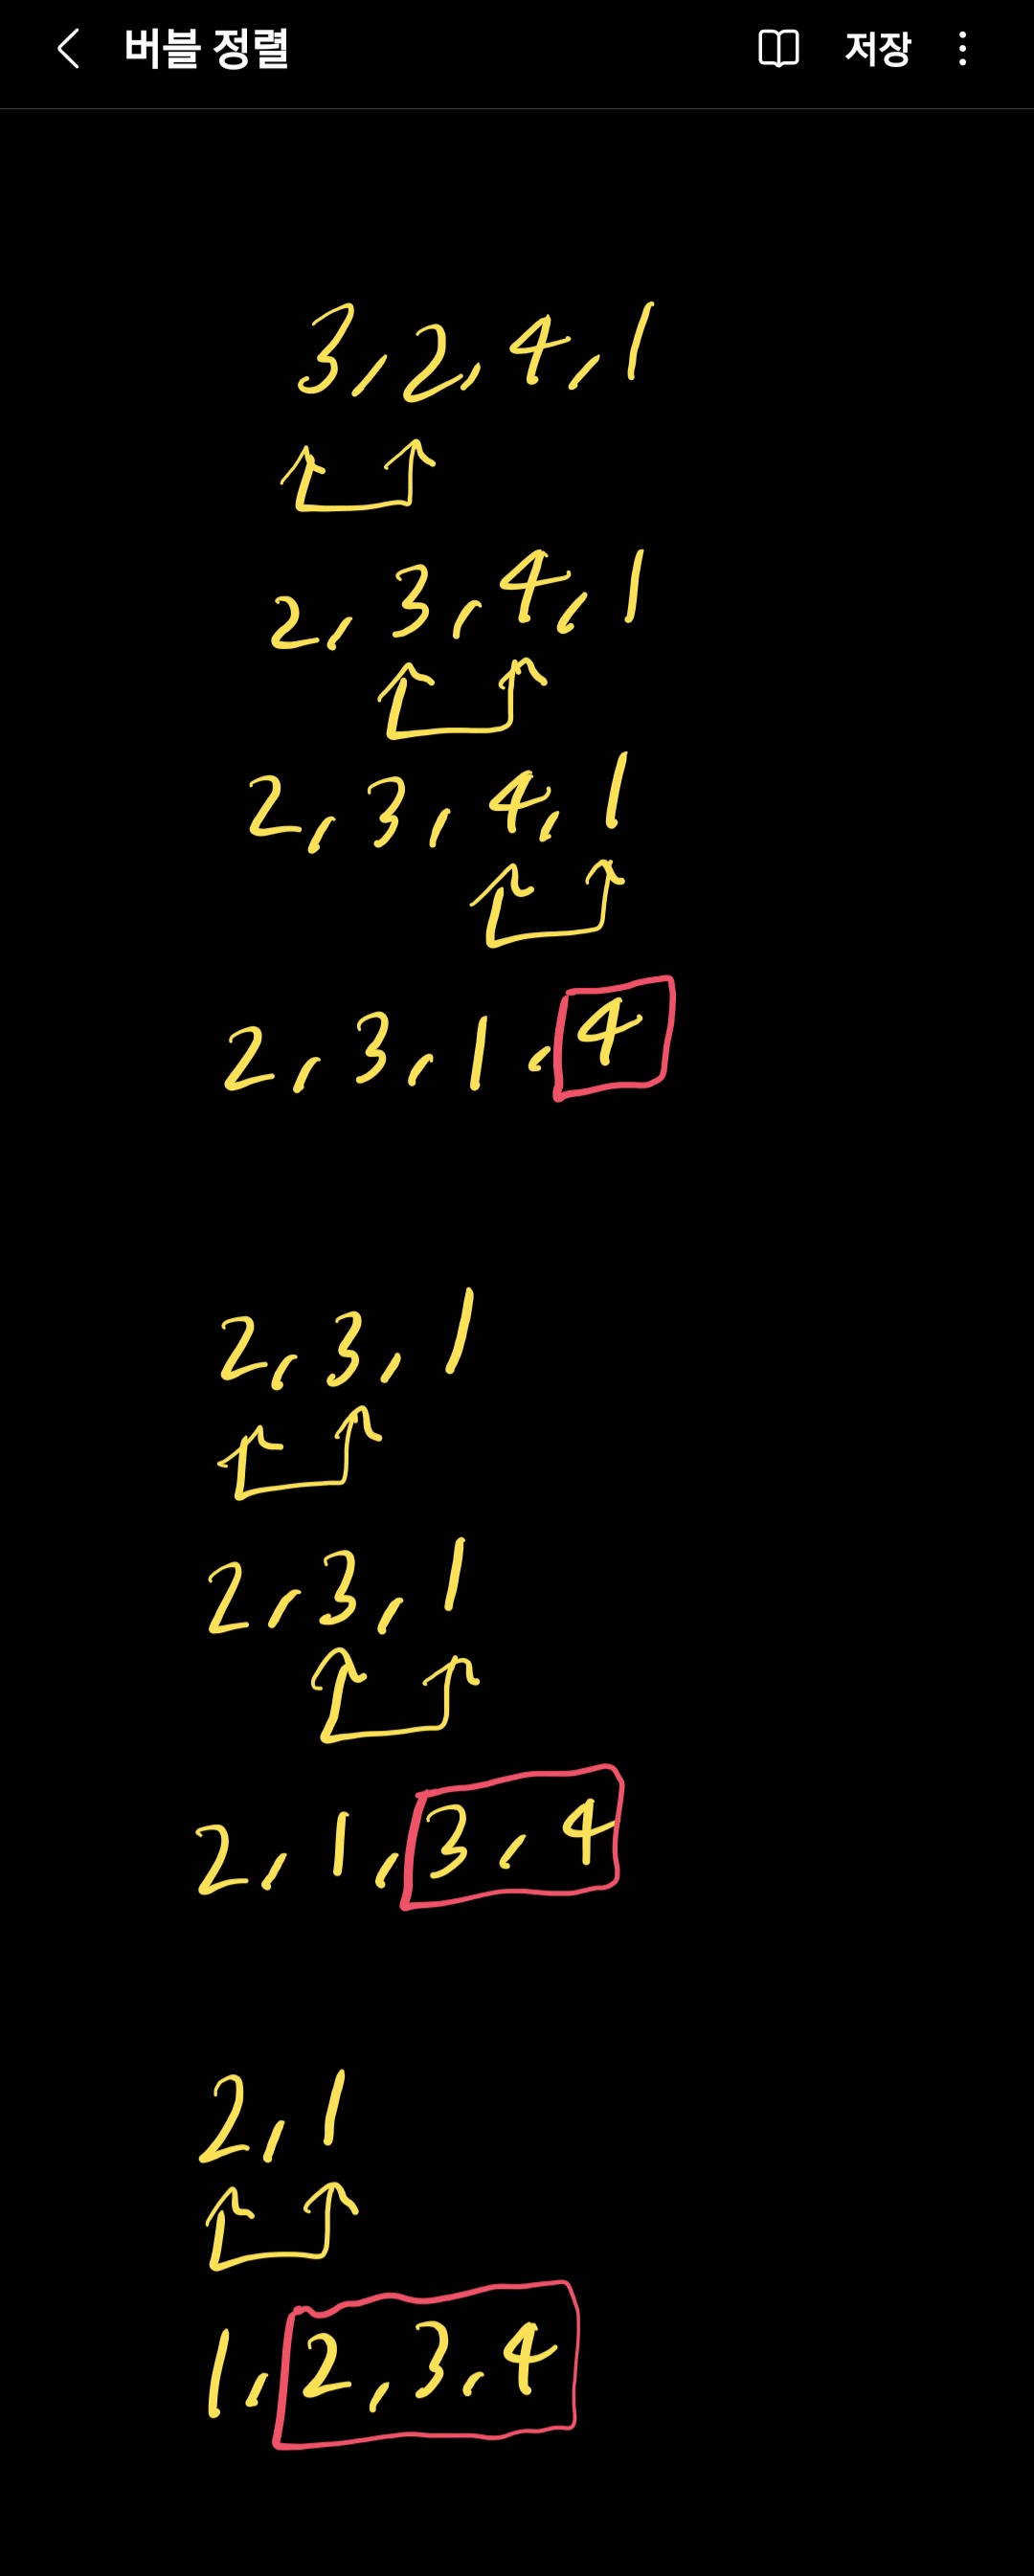 버블 정렬 저장
3, 2, 4, 1
2, 3, 4, 1
2, 3, 4, 1
2, 3, 1, 4
2, 3, 1
2, 3, 1
2, 1, 3, 4
2, 1
1, 2, 3, 4